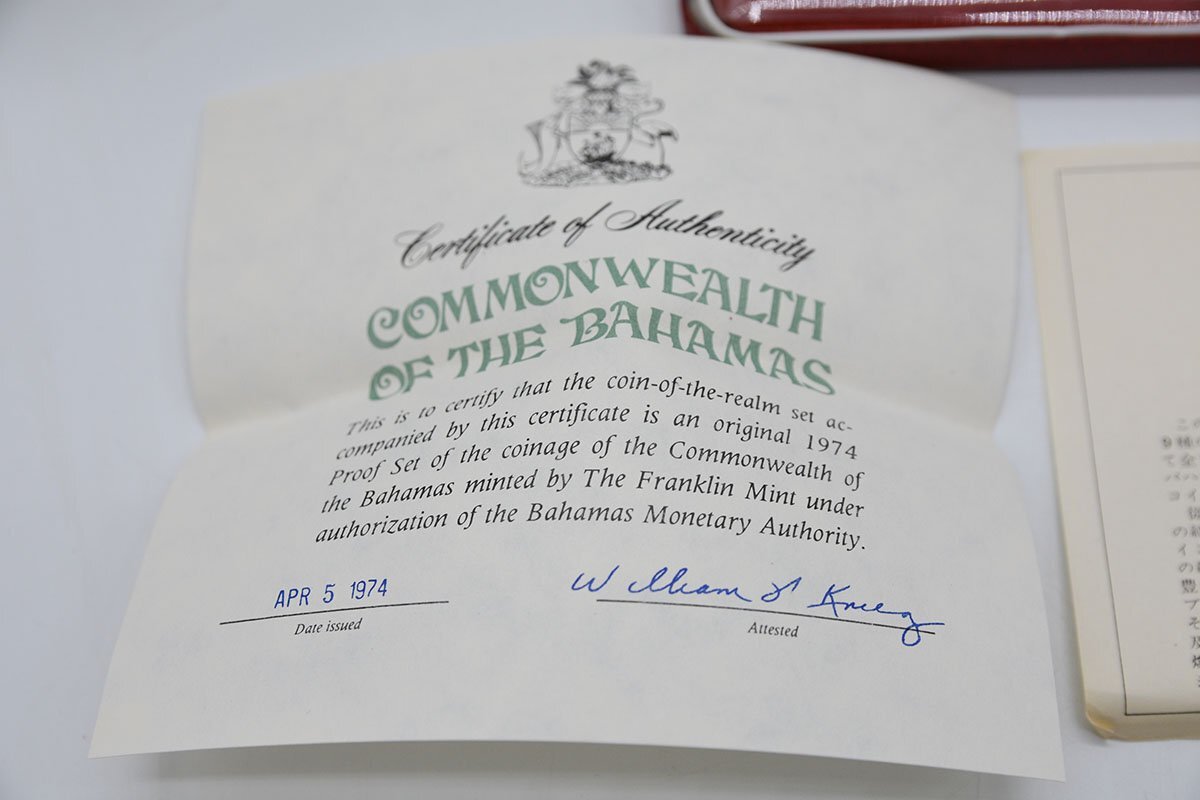 Certificate of Authenticity
COMMONWEALTH
OF THE BAHAMAS
This is to certify that the coin-of-the-realm set ac-
companied by this certificate is an original 1974
Proof Set of the coinage of the Commonwealth of
the Bahamas minted by The Franklin Mint under
authorization of the Bahamas Monetary Authority.
APR 5 1974
Date issued
William
Attested
この
9種
て金
バハ
コイ
の
イ
の
豊
プ
そ
及